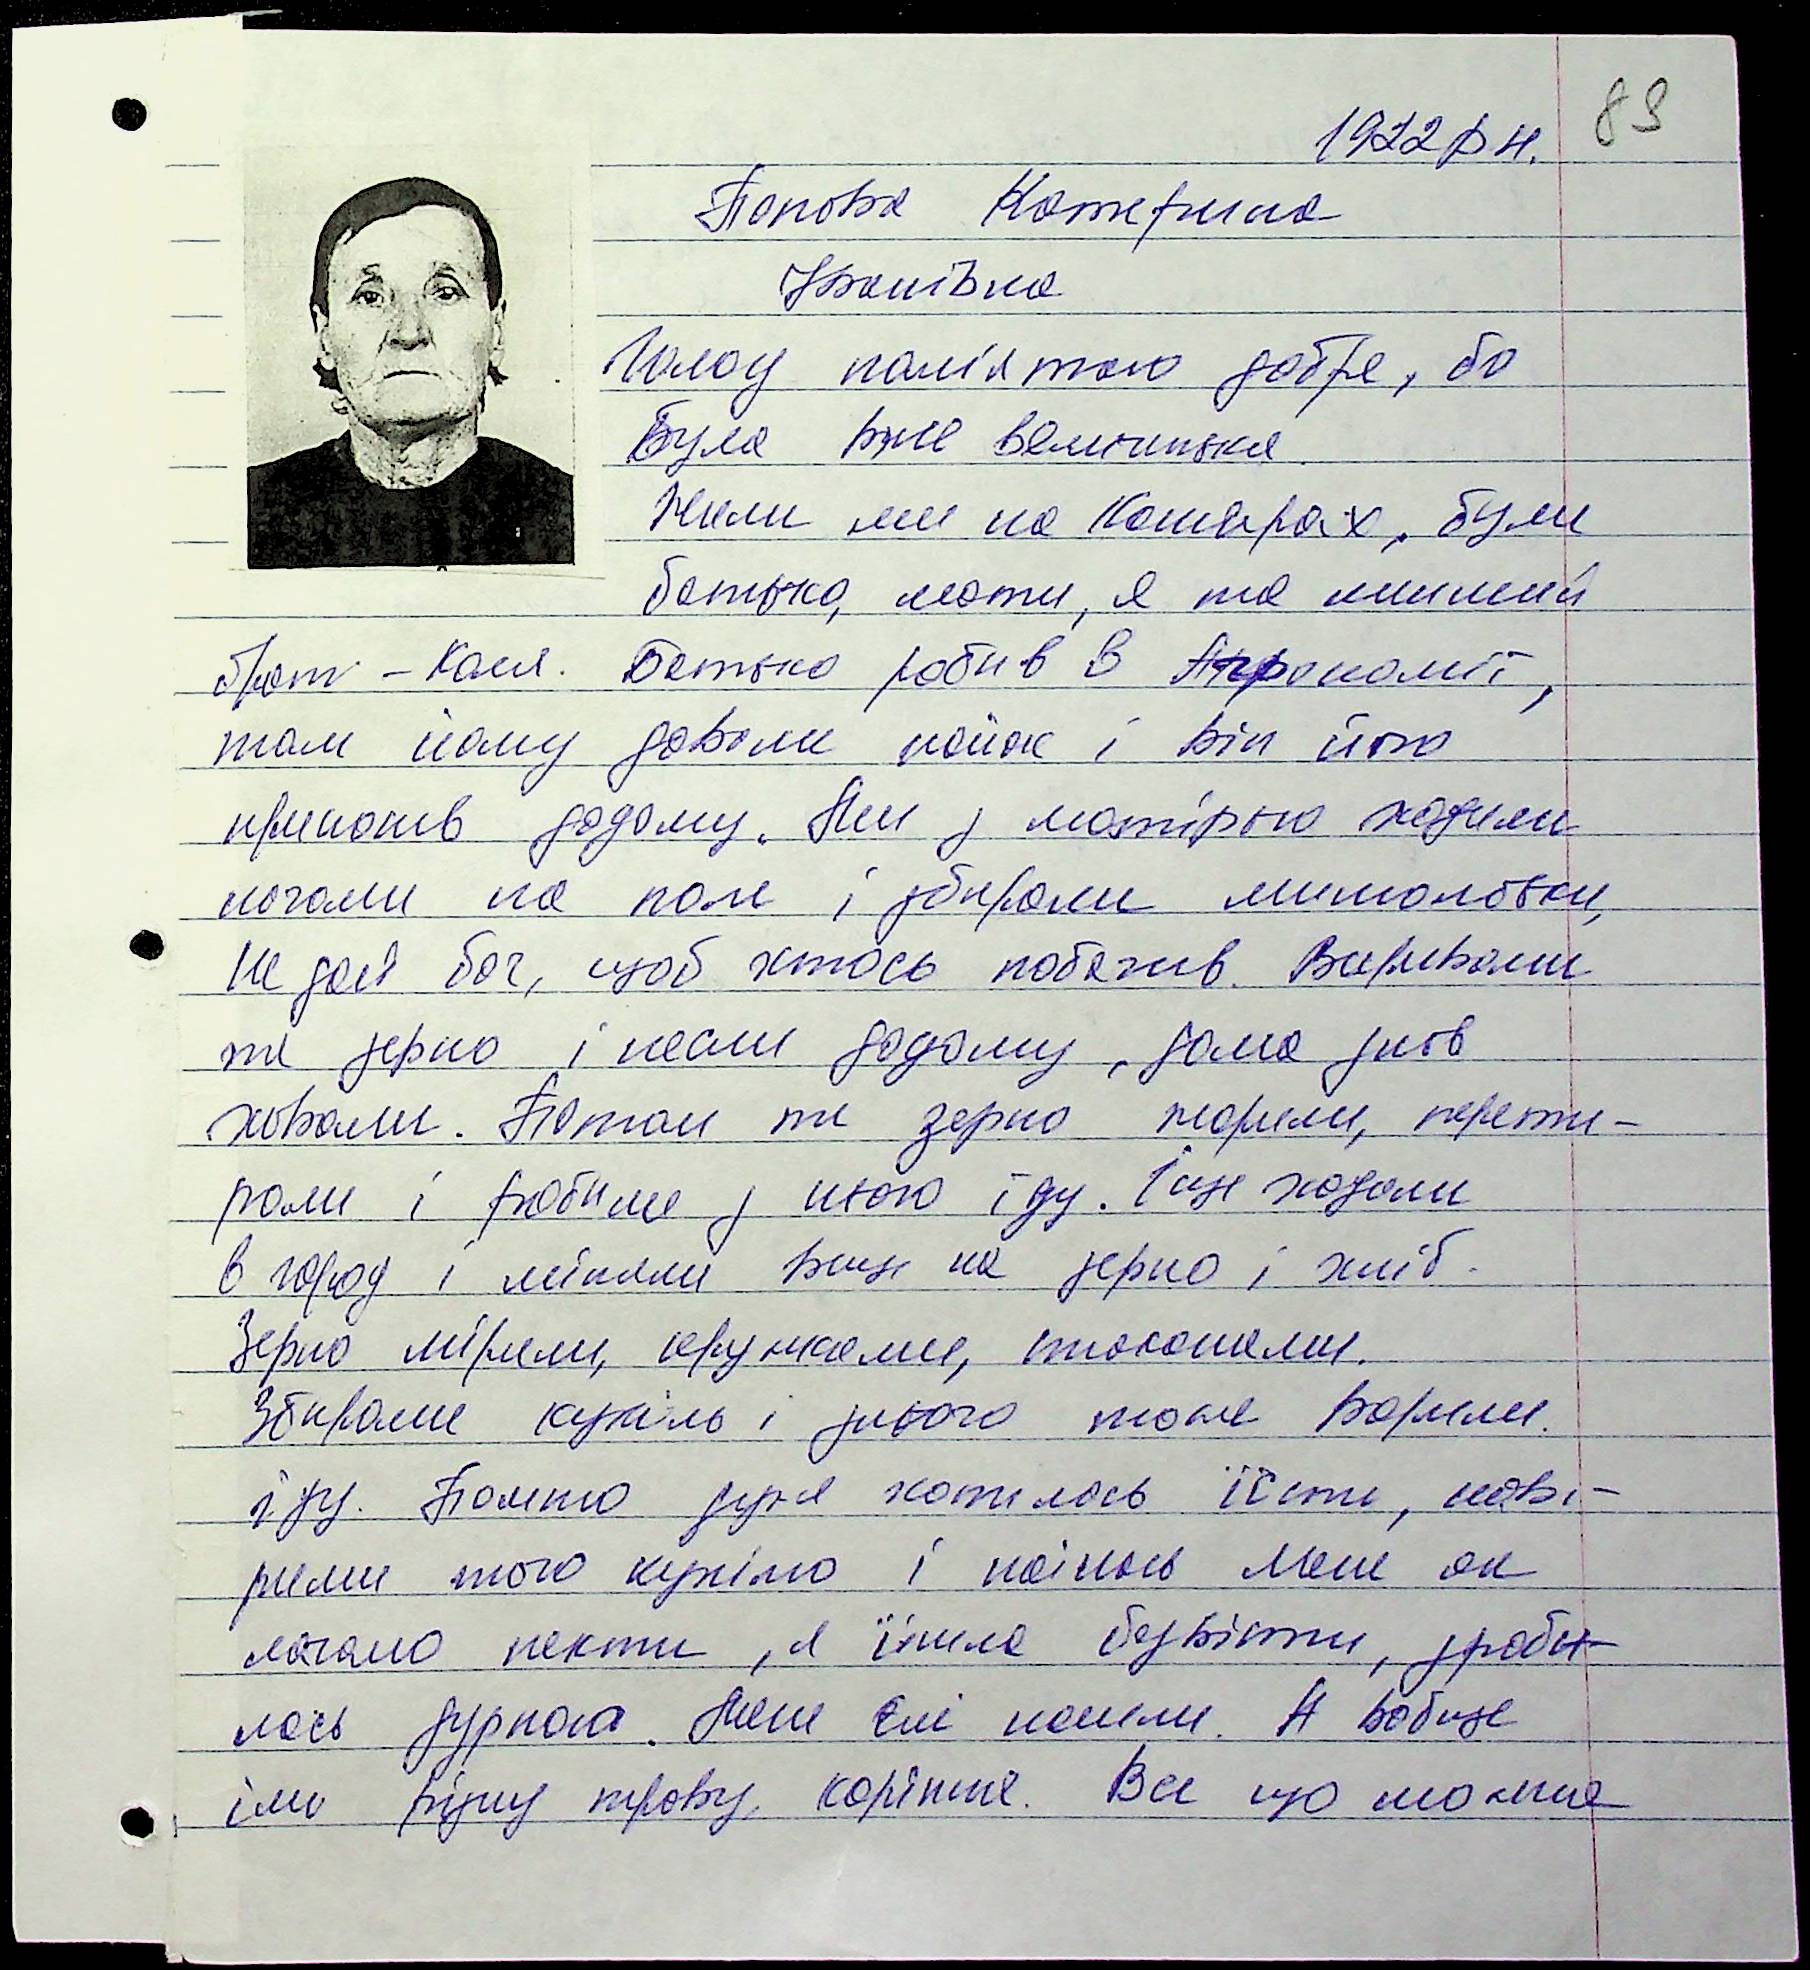 89
1922 р н.
Попова Катерина
Іванівна
Голод памʼятаю добре, бо
була вже величинька.
Жили ми на Кошарах, були
батько, мати, я та менший
брат – Коля. Батько робив в Агрономії,
там йому давали пайок і він його
приносив додому. Ми з матірью ходили
ночами на поле і збирали
Не дай бог, щоб хтось побачив. Виривали
те зерно і несли додому, дома знов
ховали. Потом те зерно жарили, перети-
рали і робили з нього їду. Іще ходили
в город і міняли вещі на зерно і хліб.
Зерно міряли, кружками, стаканами.
Збирали кукіль і з нього тоже варили
їду. Помню дуже хотилось їїсти, нава-
рили того кукілю і наїлась. Мене як
начало пекти, я їшла безвісти, зроби-
лась дурною. Мене єлі нашли. А вобще
їли різну траву, коріння. Все що можна